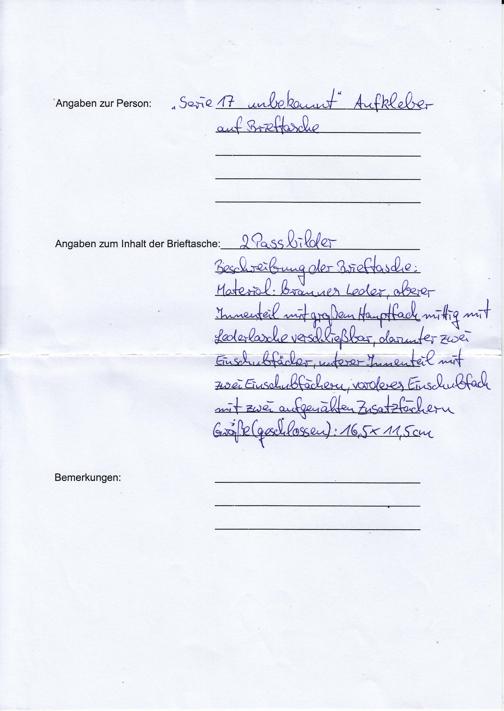 Angaben zur Person: „Serie 17 unbekannt" Aufkleber
auf Brieftasche
Angaben zum Inhalt der Brieftasche: 2 Passbilder
Beschreibung der Brieftasche:
Material: braunes Leder, oberer
Innenteil mit großem Hauptfach mittig mit
Lederlasche verschließbar, darunter zwei
Einschubfächer, unterer Innenteil mit
zwei Einschubfächern, vorderes Einschubfach
mit zwei aufgenähten Zusatzfächern
Größe (geschlossen): 16,5 x 11,5 cm
Bemerkungen: